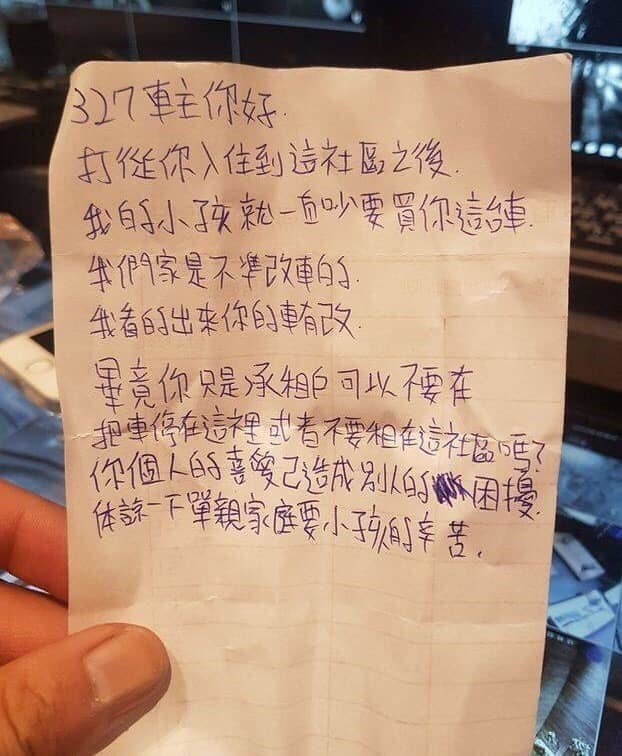 327車主你好.
打從你入住到這社區之後.
我的小孩就一直吵要買你這台車.
我們家是不準改車的.
我看的出來你的車有改.
畢竟你只是承租戶可以不要在
把車停在這裡或者不要租在這社區嗎?
你個人的喜愛已造成別人的困擾.
体諒一下單親家庭要小孩的辛苦.